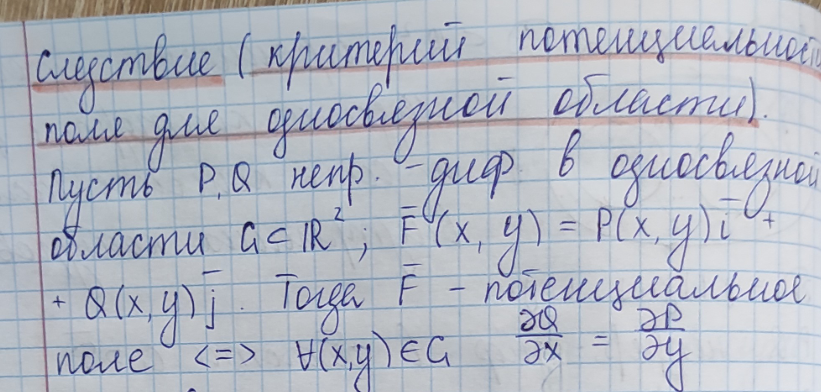 Следствие (критерий потенциальности
поля для односвязной области).
Пусть P, Q непр.-диф. в односвязной
области G ⊂ ℝ²; F̄(x, y) = P(x, y) i̅ +
+ Q(x, y) j̅. Тогда F̄ - потенциальное
поле <=> ∀(x,y) ∈ G ∂Q/∂x = ∂P/∂y